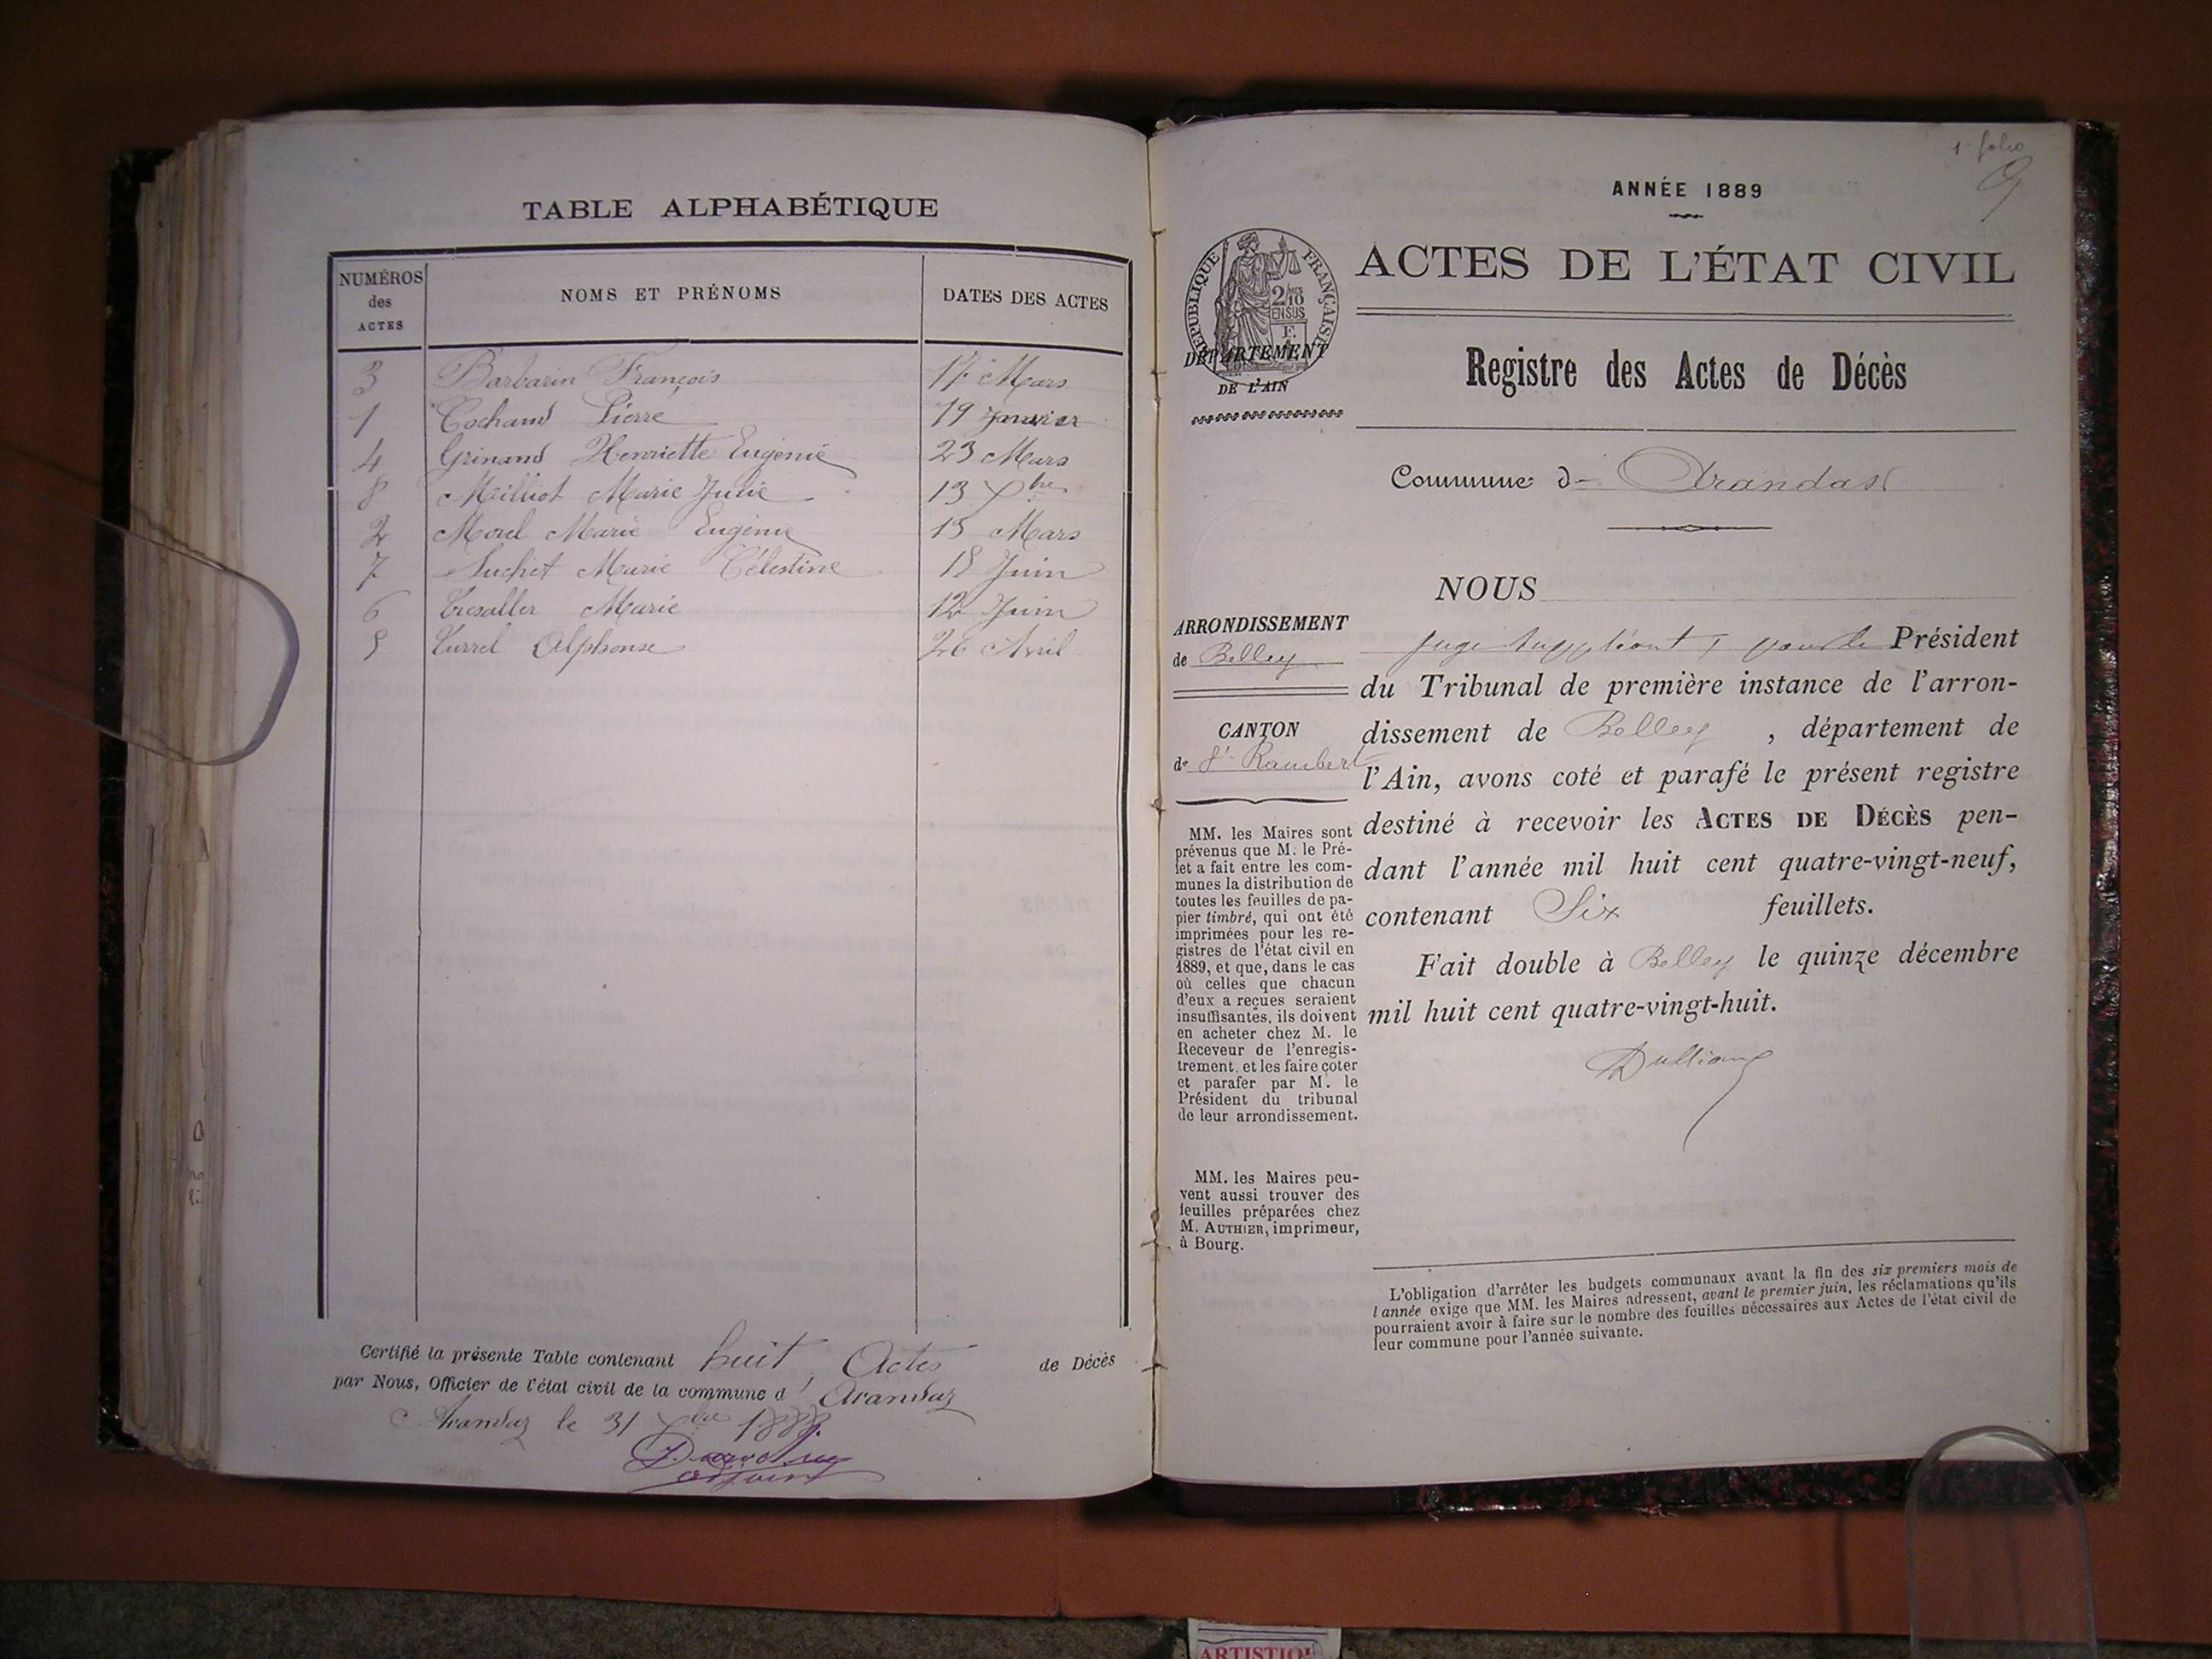 TABLE ALPHABÉTIQUE
NUMÉROS des ACTES
NOMS ET PRÉNOMS
DATES DES ACTES
3 Barbarin François 17 Mars
1 Cochand Pierre 19 Janvier
4 Grinand Henriette Eugénie 23 Mars
8 Milliot Marie Julie 13 Xbre
2 Morel Marie Eugénie 15 Mars
7 Suchet Marie Célestine 18 Juin
6 Tresallet Marie 12 Juin
5 Turrel Alphonse 26 Avril
Certifié la présente Table contenant huit Actes de Décès
par Nous, Officier de l'état civil de la commune d' Arandaz
Arandaz le 31 Xbre 1888.
adjoint
1er folio
ANNÉE 1889
ACTES DE L'ÉTAT CIVIL
RÉPUBLIQUE FRANÇAISE
2/10 EN SUS
DÉPARTEMENT
DE L'AIN
Registre des Actes de Décès
Commune d- Arandas
NOUS
juge suppléant, pour le Président
du Tribunal de première instance de l'arron-
dissement de Belley , département de
l'Ain, avons coté et parafé le présent registre
destiné à recevoir les ACTES DE DÉCÈS pen-
dant l'année mil huit cent quatre-vingt-neuf,
contenant Six feuillets.
Fait double à Belley le quinze décembre
mil huit cent quatre-vingt-huit.
ARRONDISSEMENT
de Belley
CANTON
de St Rambert
MM. les Maires sont
prévenus que M. le Pré-
fet a fait entre les com-
munes la distribution de
toutes les feuilles de pa-
pier timbré, qui ont été
imprimées pour les re-
gistres de l'état civil en
1889, et que, dans le cas
où celles que chacun
d'eux a reçues seraient
insuffisantes, ils doivent
en acheter chez M. le
Receveur de l'enregis-
trement, et les faire coter
et parafer par M. le
Président du tribunal
de leur arrondissement.
MM. les Maires peu-
vent aussi trouver des
feuilles préparées chez
M. AUTHIER, imprimeur,
à Bourg.
L'obligation d'arrêter les budgets communaux avant la fin des six premiers mois de
l'année exige que MM. les Maires adressent, avant le premier juin, les réclamations qu'ils
pourraient avoir à faire sur le nombre des feuilles nécessaires aux Actes de l'état civil de
leur commune pour l'année suivante.